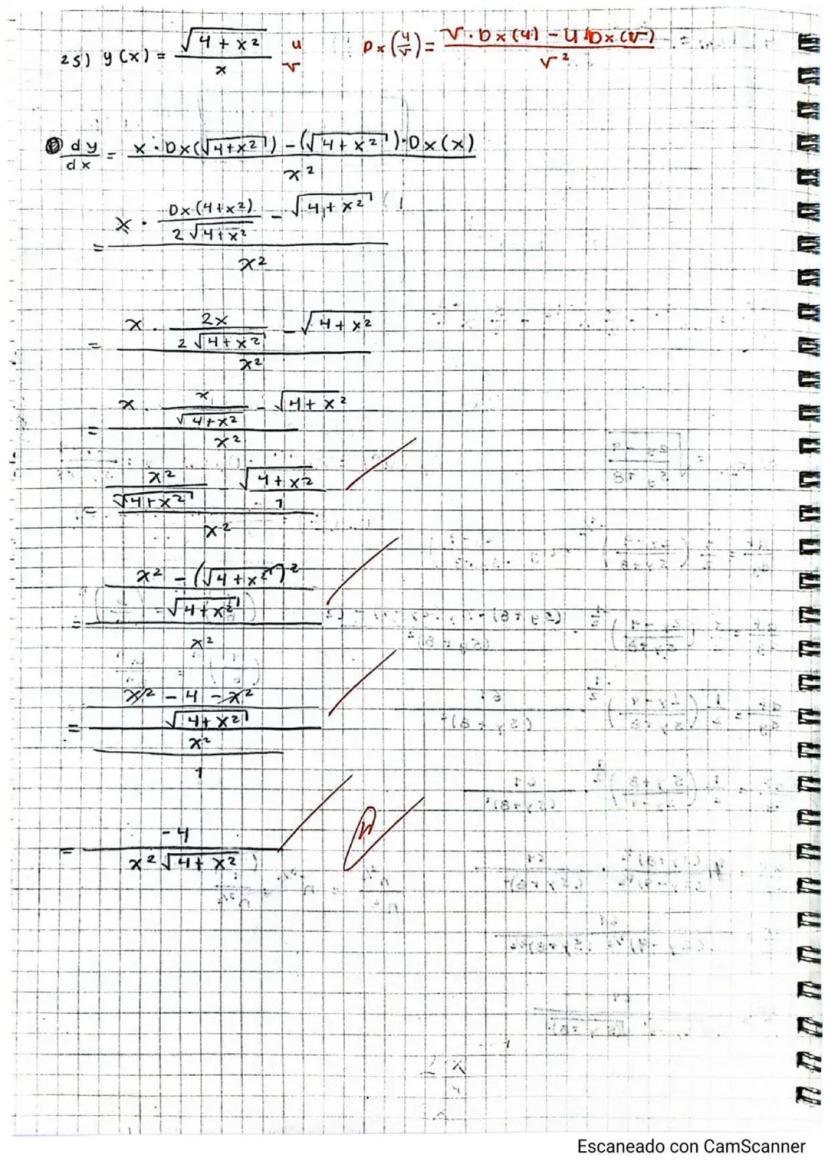 25) y(x) = √(4 + x²) / x  u/v  Dx(u/v) = (v · Dx(u) − u · Dx(v)) / v²
dy/dx = (x · Dx(√(4+x²)) − (√(4+x²)) · Dx(x)) / x²
= (x · Dx(4+x²) / (2√(4+x²)) − √(4+x²)) / x²
= (x · 2x / (2√(4+x²)) − √(4+x²)) / x²
= (x · x / √(4+x²) − √(4+x²)) / x²
= (x² / √(4+x²) − √(4+x²) / 1) / x²
= ((x² − (√(4+x²))²) / √(4+x²)) / x²
= ((x² − 4 − x²) / √(4+x²)) / (x² / 1)
= −4 / (x² √(4+x²))
Escaneado con CamScanner